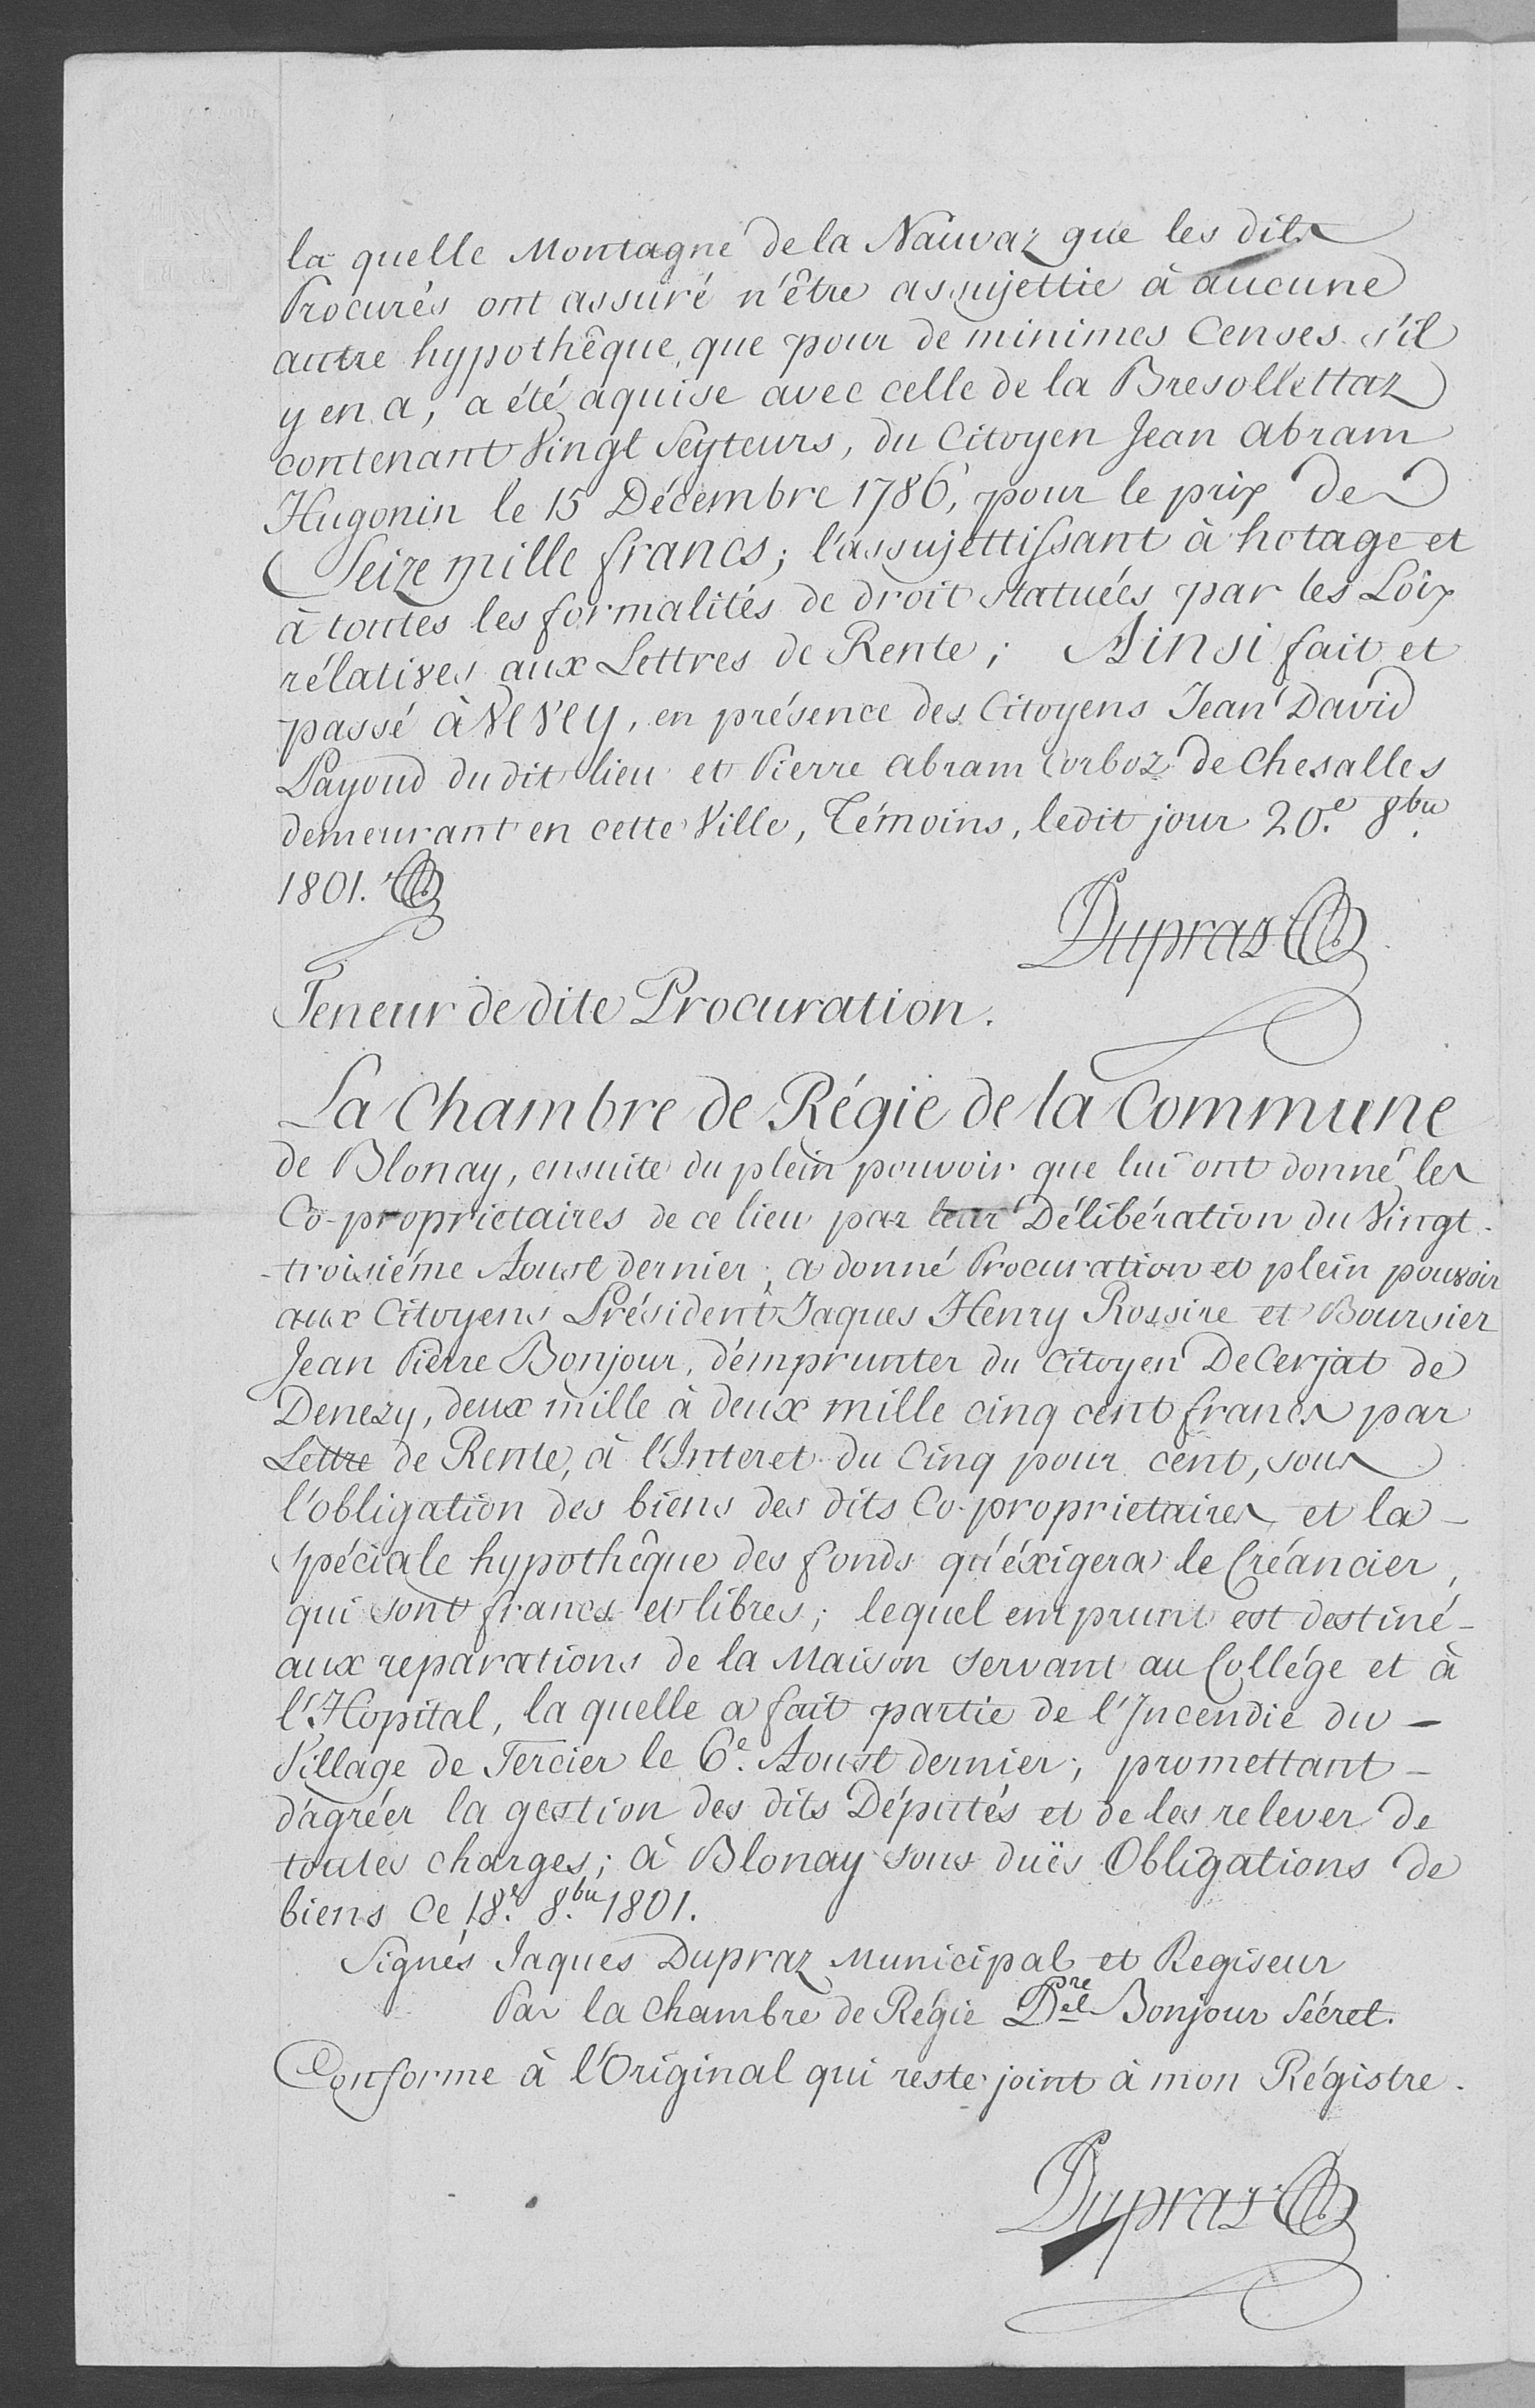 la quelle Montagne de la Naivaz que les dits
Procurés ont assuré n'être assujettie à aucune
autre hypothêque, que pour de minimes Censes s'il
y en a, a été aquise avec celle de la Bresollettaz
contenant Vingt Seyteurs, du Citoyen Jean Abram
Hugonin le 15 Décembre 1786, pour le prix de
Seize mille francs; l'assujettissant à hotage et
à toutes les formalités de droit statuées par les Loix
rélatives aux Lettres de Rente; Ainsi fait et
passé à Vevey, en présence des Citoyens Jean David
Payoud du dit lieu et Pierre Abram Corboz de Chesalles
demeurant en cette Ville, Témoins, ledit jour 20.e 8bre
1801.
Dupraz
Teneur de dite Procuration.
La Chambre de Régie de la Commune
de Blonay, ensuite du plein pouvoir que lui ont donné les
Co-proprietaires de ce lieu par leur Délibération du Vingt-
-troisiéme Aoust dernier; a donné Procuration et plein pouvoir
aux Citoyens Président Jaques Henry Rossire et Boursier
Jean Pierre Bonjour, d'emprunter du Citoyen DeCerjat de
Denezy, deux mille à deux mille cinq cent francs par
Lettre de Rente, à l'Interet du Cinq pour cent, sous
l'obligation des biens des dits Co-proprietaires et la -
spéciale hypothêque des fonds qu'éxigera le Créancier,
qui sont francs et libres; lequel emprunt est destiné -
aux reparations de la Maison servant au Collége et à
l'Hopital, la quelle a fait partie de l'Incendie du -
Village de Tercier le 6e. Aoust dernier; promettant -
d'agréer la gestion des dits Députés et de les relever de
toutes charges; à Blonay sous duës Obligations de
biens Ce 18.e 8.bre 1801.
Signés Jaques Dupraz Municipal et Regiseur
Par la Chambre de Régie Del Bonjour Sécret.re
Conforme à l'Original qui reste joint à mon Régistre.
Dupraz